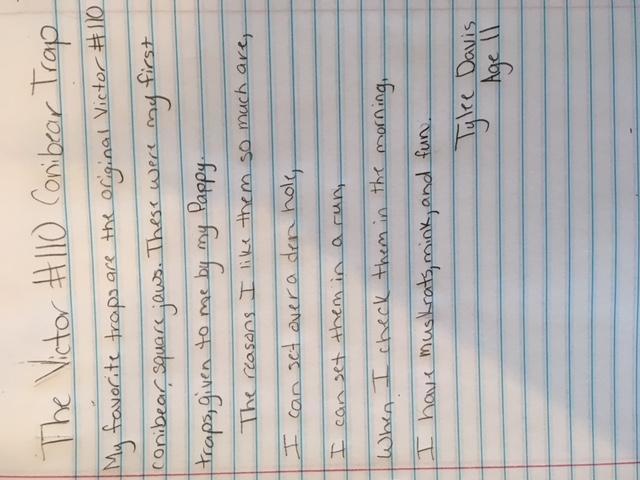 The Victor #110 Conibear Trap
My favorite traps are the original Victor #110
conibear, square jaws. These were my first
traps, given to me by my Pappy.
The reasons I like them so much are,
I can set over a den hole,
I can set them in a run,
When I check them in the morning,
I have muskrats, mink, and fun.
Tylee Davis
Age 11